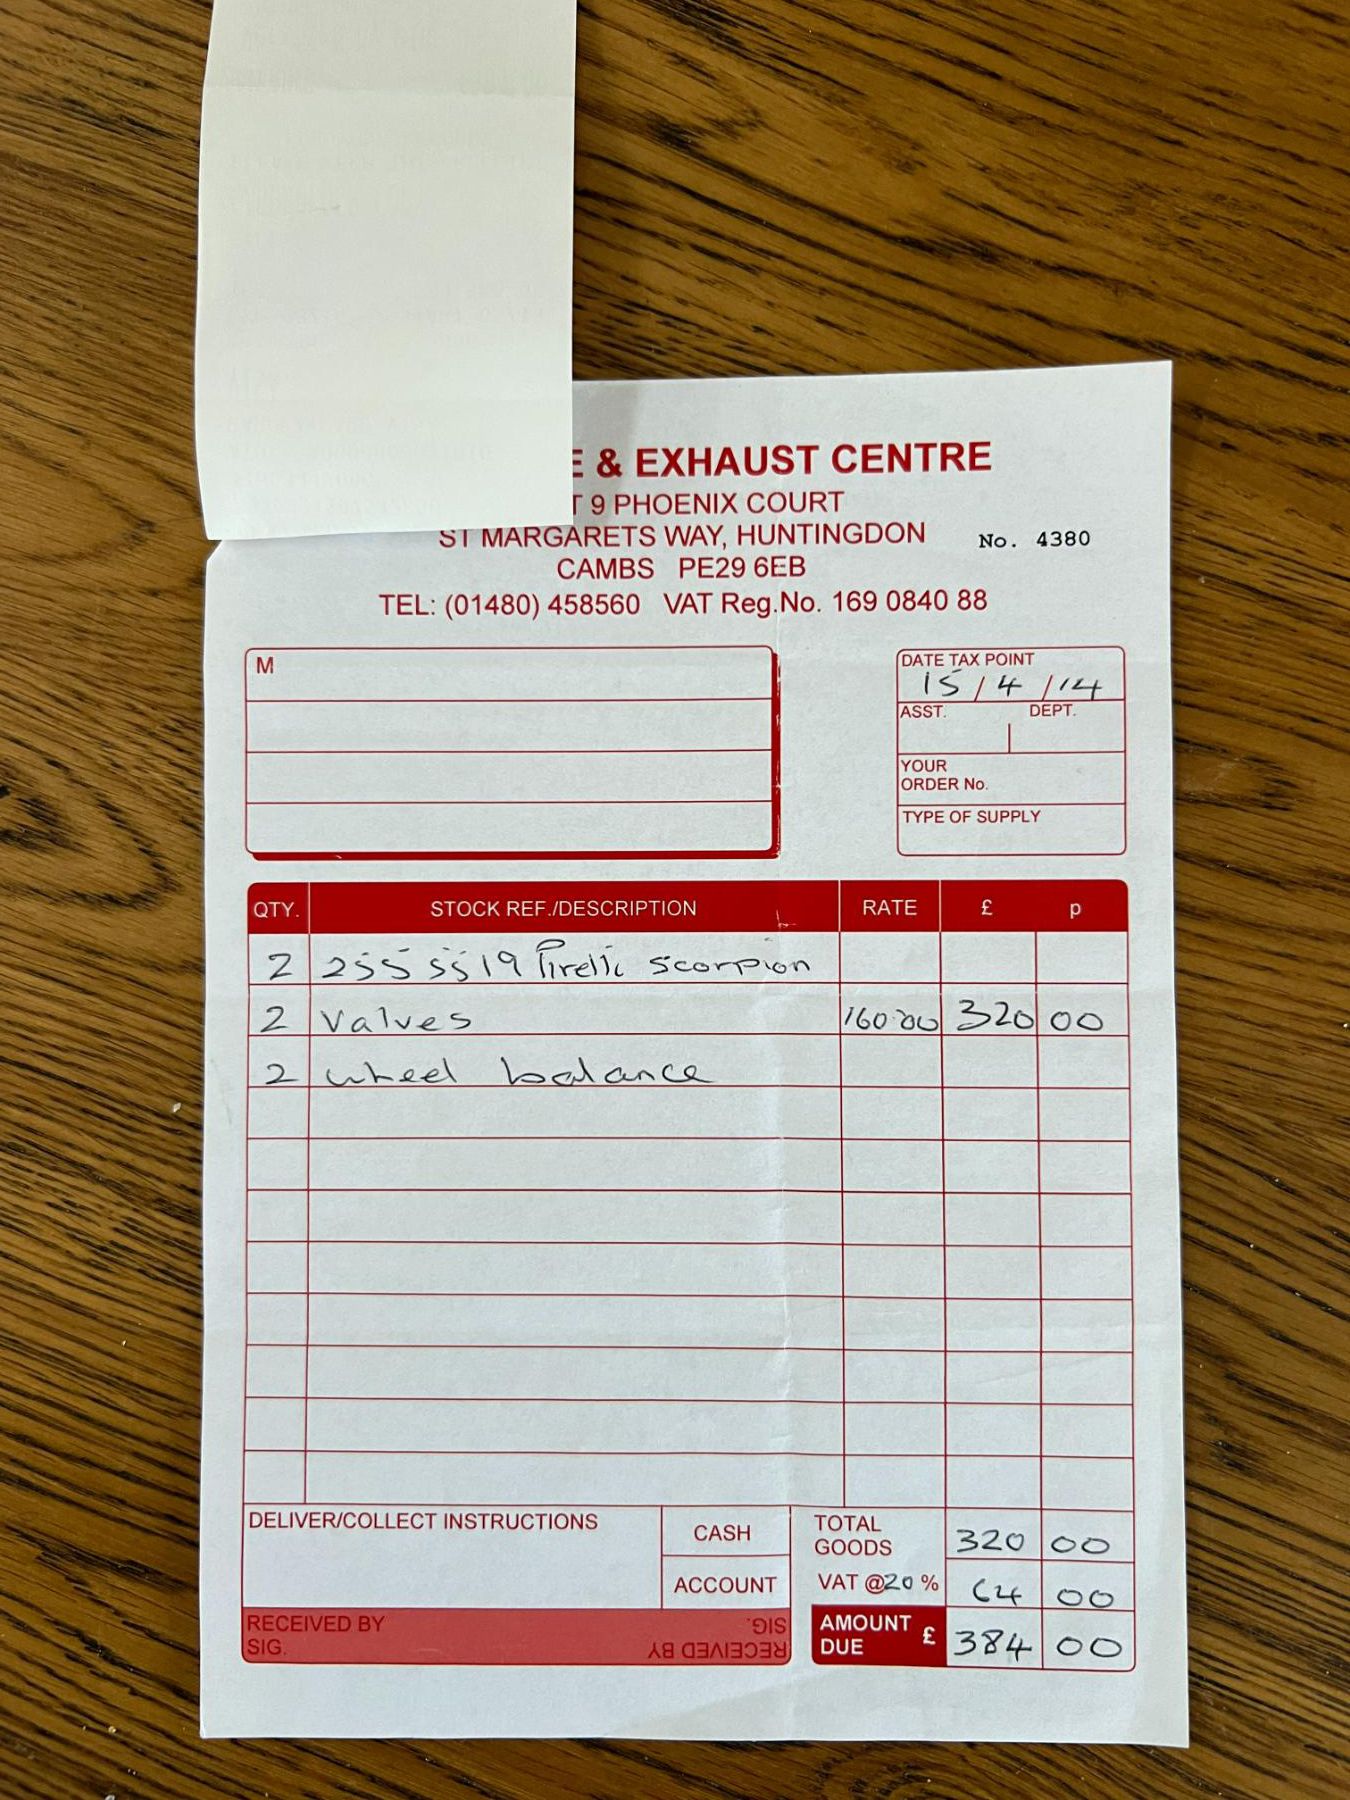 E & EXHAUST CENTRE
T 9 PHOENIX COURT
ST MARGARETS WAY, HUNTINGDON
No. 4380
CAMBS PE29 6EB
TEL: (01480) 458560 VAT Reg.No. 169 0840 88
M
DATE TAX POINT
15/4/14
ASST. DEPT.
YOUR
ORDER No.
TYPE OF SUPPLY
QTY. STOCK REF./DESCRIPTION RATE £ p
2 255 55 19 Pirelli Scorpion
2 Valves 160.00 320 00
2 wheel balance
DELIVER/COLLECT INSTRUCTIONS
CASH
ACCOUNT
RECEIVED BY
SIG.
RECEIVED BY
SIG.
TOTAL
GOODS 320 00
VAT @20% 64 00
AMOUNT
DUE £ 384 00